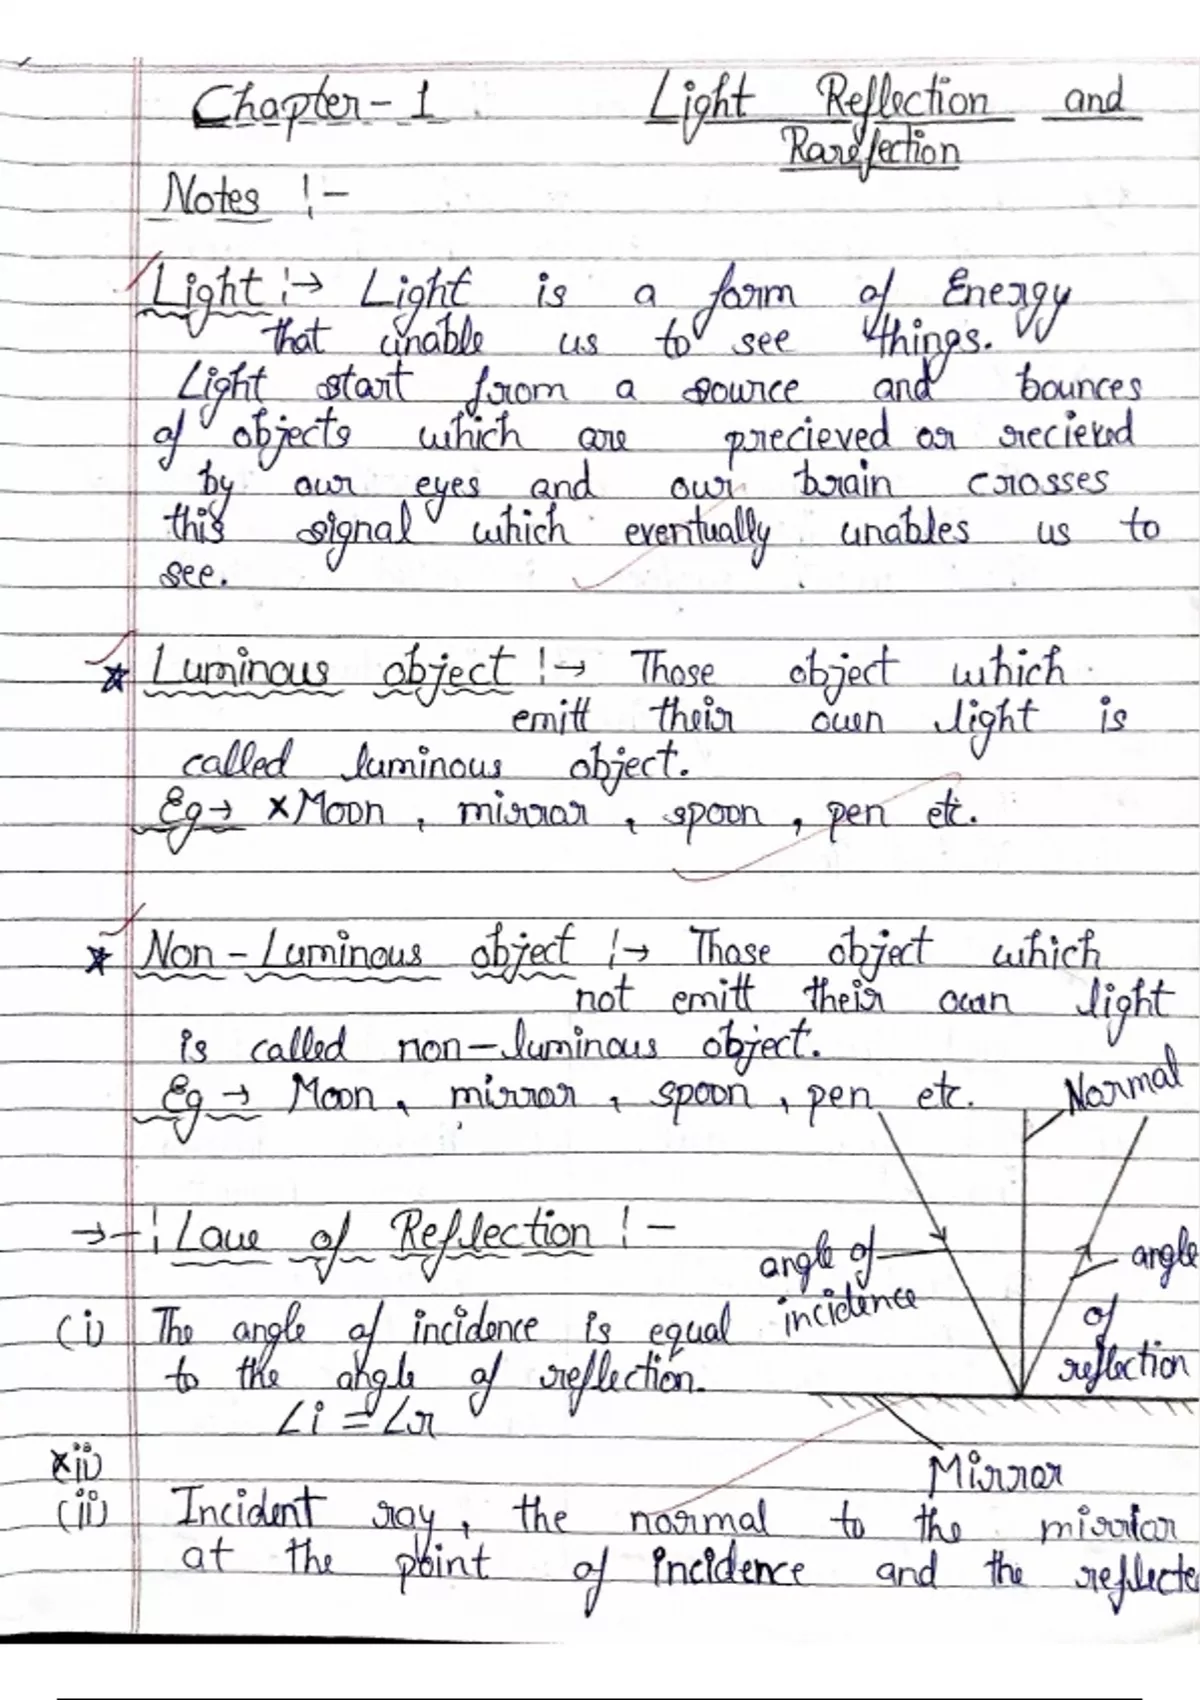 Chapter - 1 Light Reflection and
Rarefection
Notes :-
Light :→ Light is a form of Energy
that unable us to see things.
Light start from a source and bounces
of objects which are precieved or recieved
by our eyes and our brain crosses
this signal which eventually unables us to
see.
Luminous object :→ Those object which
emitt their own light is
called luminous object.
Eg → xMoon, mirror, spoon, pen etc.
Non-Luminous object :→ Those object which
not emitt their own light
is called non-luminous object.
Eg → Moon, mirror, spoon, pen etc.
Normal
→ - : Law of Reflection :-
angle of
incidence
angle
of
reflection
(i) The angle of incidence is equal
to the angle of reflection.
∠i = ∠r
Mirror
xii)
(ii) Incident ray, the normal to the mirror
at the point of incidence and the reflecte